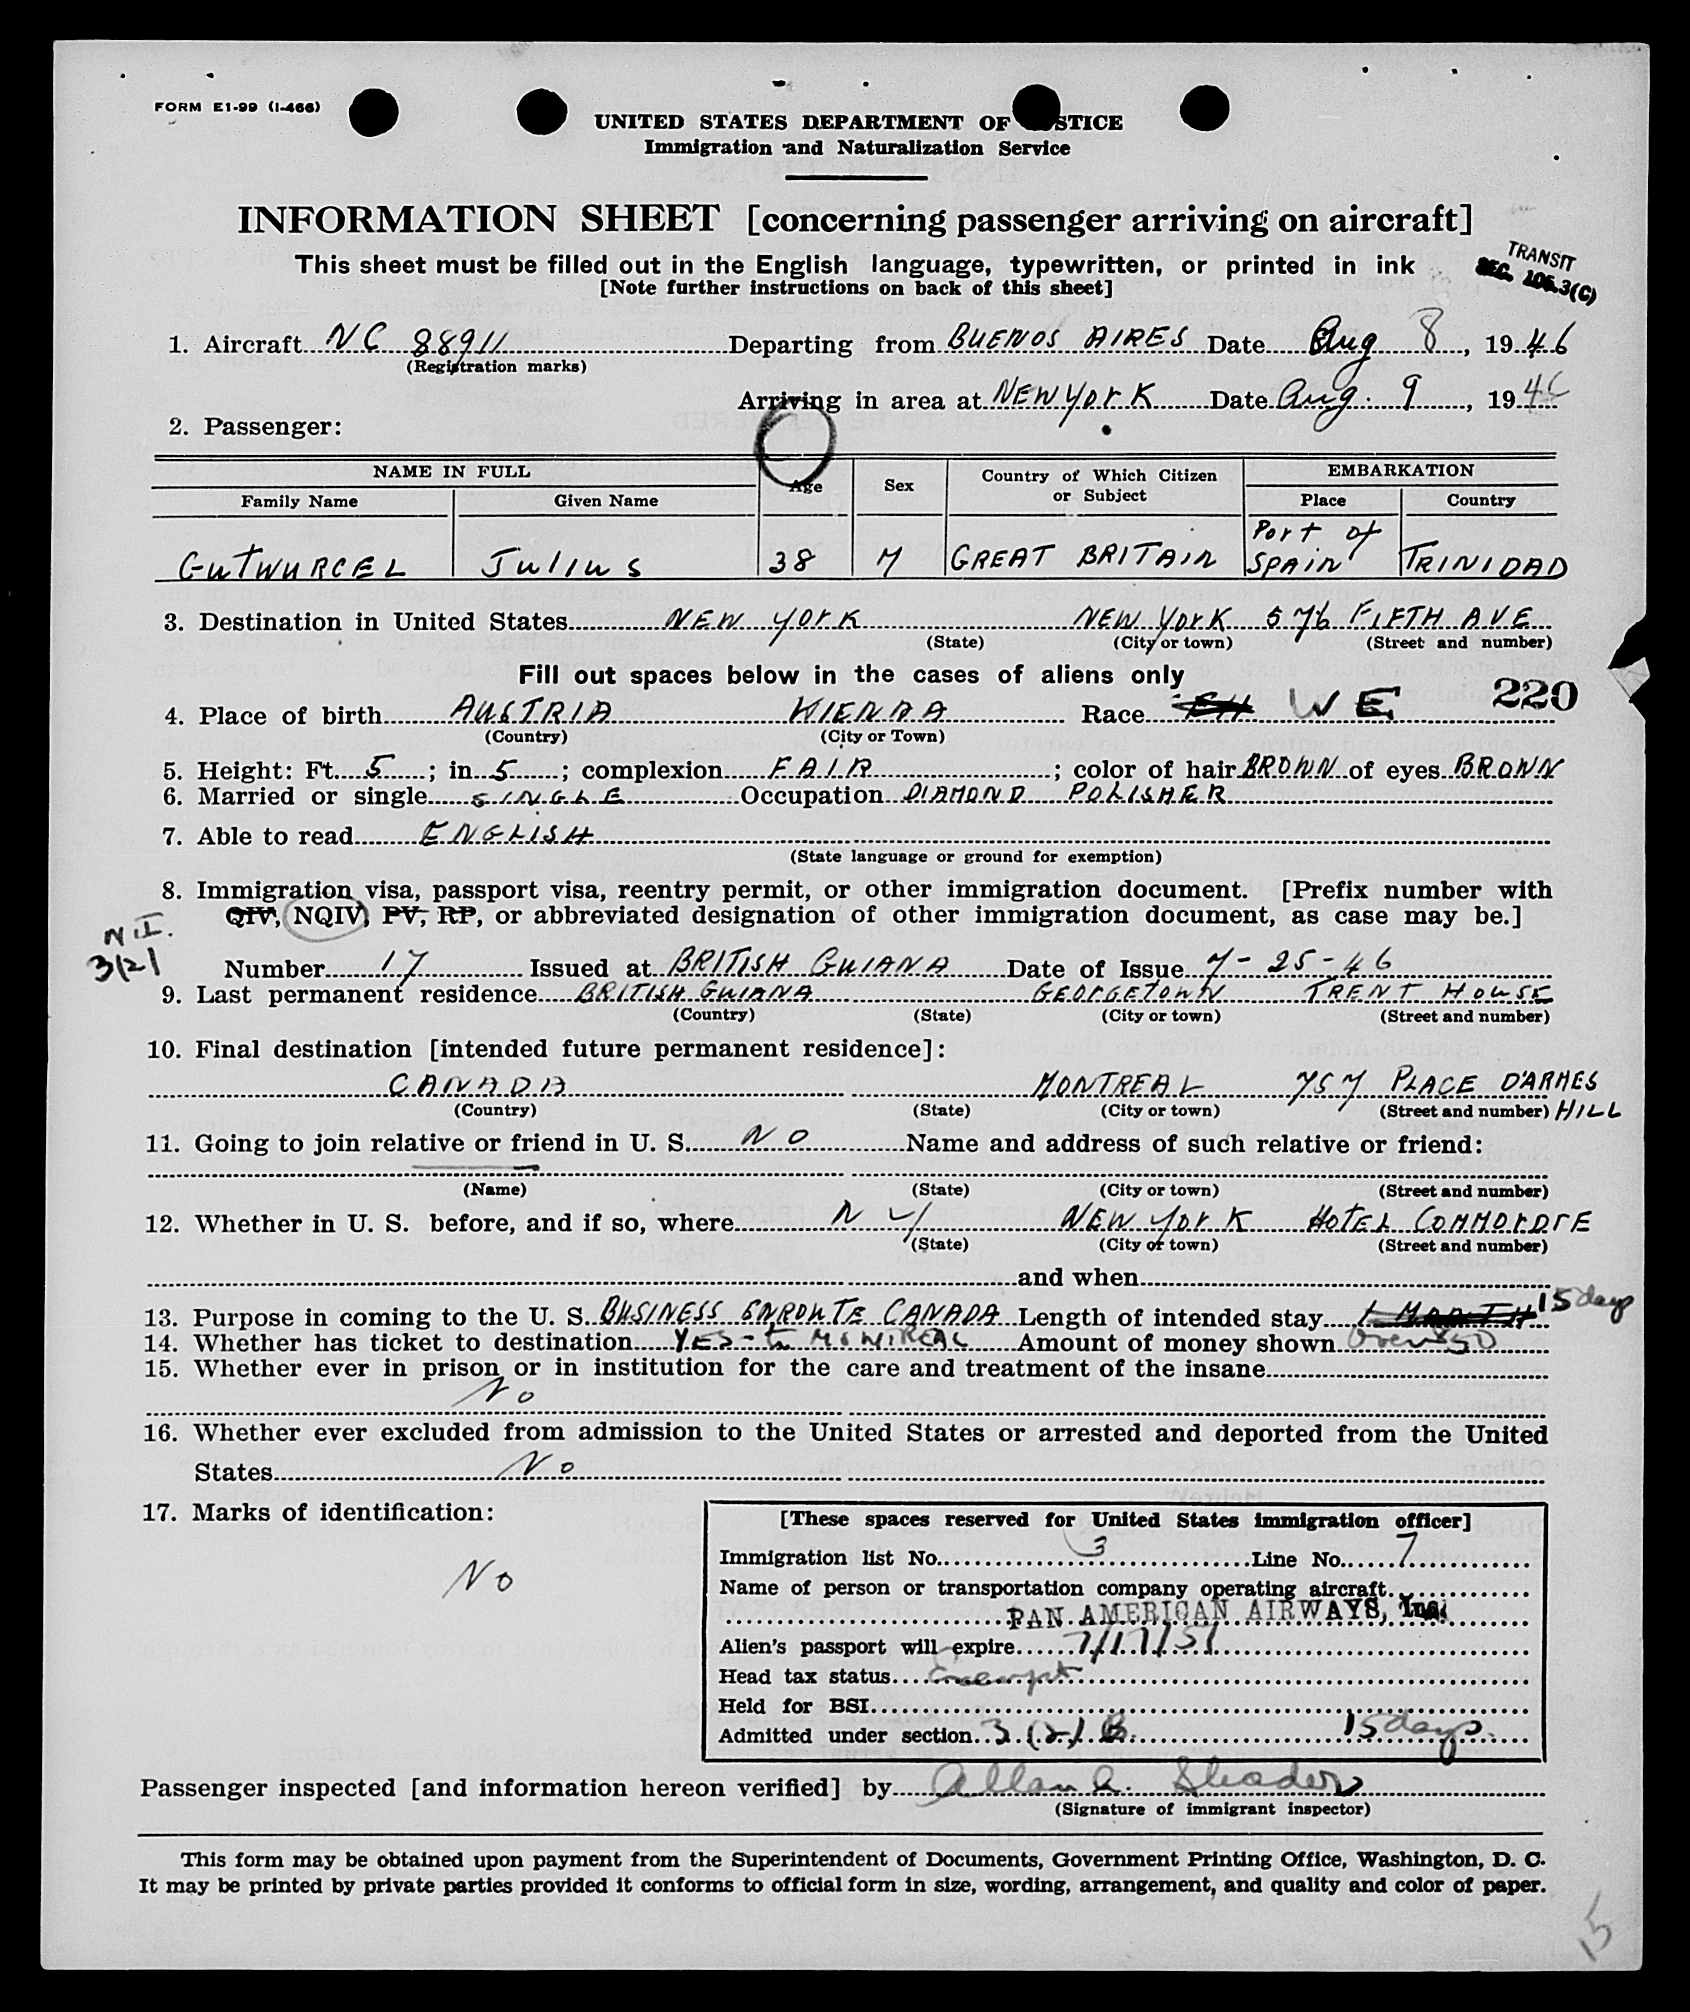 FORM E1-99 (I-466)
UNITED STATES DEPARTMENT OF STICE
Immigration and Naturalization Service
INFORMATION SHEET [concerning passenger arriving on aircraft]
This sheet must be filled out in the English language, typewritten, or printed in ink
[Note further instructions on back of this sheet]
TRANSIT
SEC. 105.3(C)
1. Aircraft NC 88911 Departing from BUENOS AIRES Date Aug 8, 1946
(Registration marks)
Arriving in area at NEW YORK Date Aug. 9, 1946
2. Passenger:
NAME IN FULL Age Sex Country of Which Citizen or Subject EMBARKATION
Family Name Given Name Place Country
GUTWURCEL Julius 38 M GREAT BRITAIN Port of SPAIN TRINIDAD
3. Destination in United States NEW YORK NEW YORK 576 FIFTH AVE
(State) (City or town) (Street and number)
Fill out spaces below in the cases of aliens only
220
4. Place of birth AUSTRIA VIENNA Race W E
(Country) (City or Town)
5. Height: Ft. 5; in. 5; complexion FAIR; color of hair BROWN of eyes BROWN
6. Married or single SINGLE Occupation DIAMOND POLISHER
7. Able to read ENGLISH
(State language or ground for exemption)
8. Immigration visa, passport visa, reentry permit, or other immigration document. [Prefix number with
QIV, NQIV, PV, RP, or abbreviated designation of other immigration document, as case may be.]
N.I.
3(2)
Number 17 Issued at BRITISH GUIANA Date of Issue 7-25-46
9. Last permanent residence BRITISH GUIANA GEORGETOWN TRENT HOUSE
(Country) (State) (City or town) (Street and number)
10. Final destination [intended future permanent residence]:
CANADA MONTREAL 757 PLACE D'ARMES
(Country) (State) (City or town) (Street and number) HILL
11. Going to join relative or friend in U. S. NO Name and address of such relative or friend:
(Name) (State) (City or town) (Street and number)
12. Whether in U. S. before, and if so, where N Y NEW YORK HOTEL COMMODORE
(State) (City or town) (Street and number)
and when
13. Purpose in coming to the U. S. BUSINESS ENROUTE CANADA Length of intended stay 1 MONTH 15 days
14. Whether has ticket to destination YES - to MONTREAL Amount of money shown Over $50
15. Whether ever in prison or in institution for the care and treatment of the insane
No
16. Whether ever excluded from admission to the United States or arrested and deported from the United
States No
17. Marks of identification:
No
[These spaces reserved for United States immigration officer]
Immigration list No. 3 Line No. 7
Name of person or transportation company operating aircraft
PAN AMERICAN AIRWAYS, Inc.
Alien's passport will expire 7/17/51
Head tax status Exempt
Held for BSI
Admitted under section 3(2) B. 15 days
Passenger inspected [and information hereon verified] by Allan A.
(Signature of immigrant inspector)
This form may be obtained upon payment from the Superintendent of Documents, Government Printing Office, Washington, D. C.
It may be printed by private parties provided it conforms to official form in size, wording, arrangement, and quality and color of paper.
5